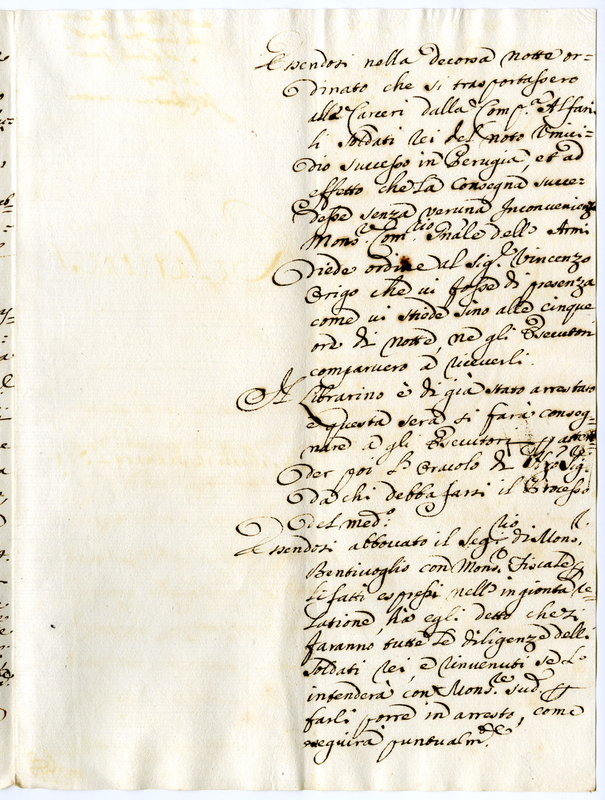 Essendosi nella decorsa notte or=
dinato che si trasportassero
alle Carceri dalla Comp.ª Alfari
li Soldati rei del noto
successo in Perugia, et ad
effetto che la Consegna succe=
desse senza veruna Inconvenienza
Mons.r Com.rio Gñale dell'Armi
diede ordine al Sig.r Vincenzo
Origo che vi fosse di presenza
come vi stiede sino alle cinque
ore di notte, ne gli Esecutori
comparuero à riceverli.
Il Librarino è di già stato arrestato
e questa sera si farà conseg=
nare à gli Esecutori p atten
der poi l'Oracolo di Sig.
da chi debba farsi il Processo
del med.º
Essendosi abboccato il Seg.rio di Mons.r
Bentivoglio con Mons.r Fiscale p
li fatti espressi nell'ingionta Re=
latione, hà egli detto che si
faranno tutte le diligenze delli
Soldati rei, e rinvenuti se le
intenderà con Mons.re sud.º p
farli porre in arresto, come
seguirà puntualm.te